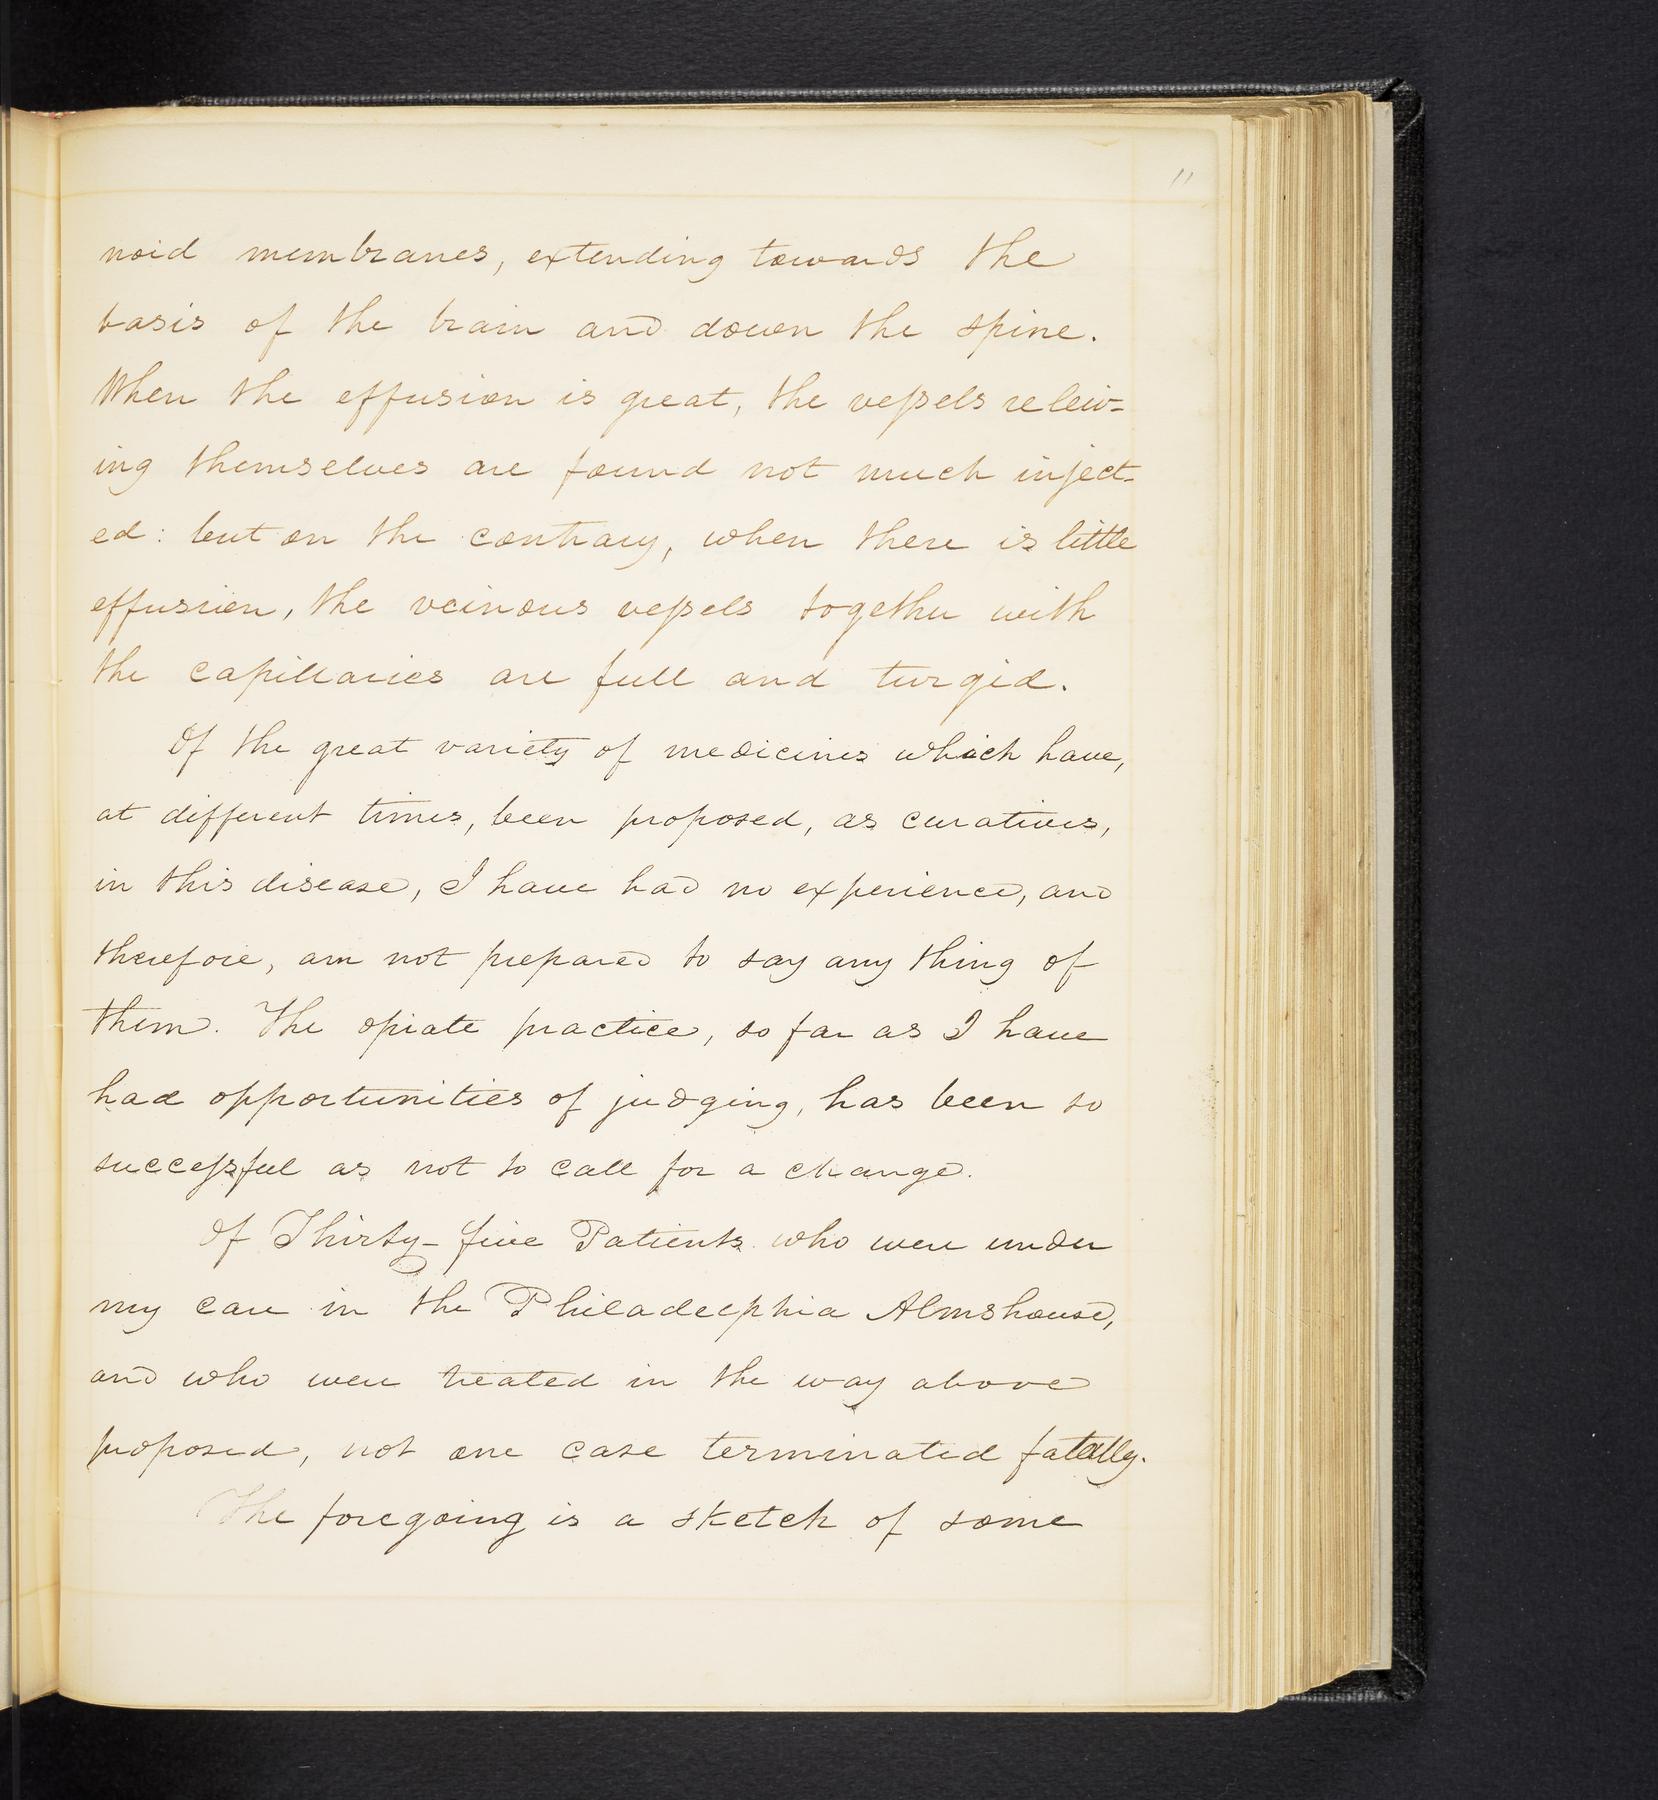 11
noid membranes, extending towards the
basis of the brain and down the spine.
When the effusion is great, the vessels releiv=
ing themselves are found not much inject-
ed: but on the contrary, when there is little
effusion, the veinous vessels together with
the capillaries are full and turgid.
Of the great variety of medicines which have,
at different times, been proposed, as curatives,
in this disease, I have had no experience, and
therefore, am not prepared to say any thing of
them. The opiate practice, so far as I have
had opportunities of judging, has been so
successful as not to call for a change.
Of Thirty-five Patients who were under
my care in the Philadelphia Almshouse,
and who were treated in the way above
proposed, not one case terminated fatally.
The foregoing is a sketch of some